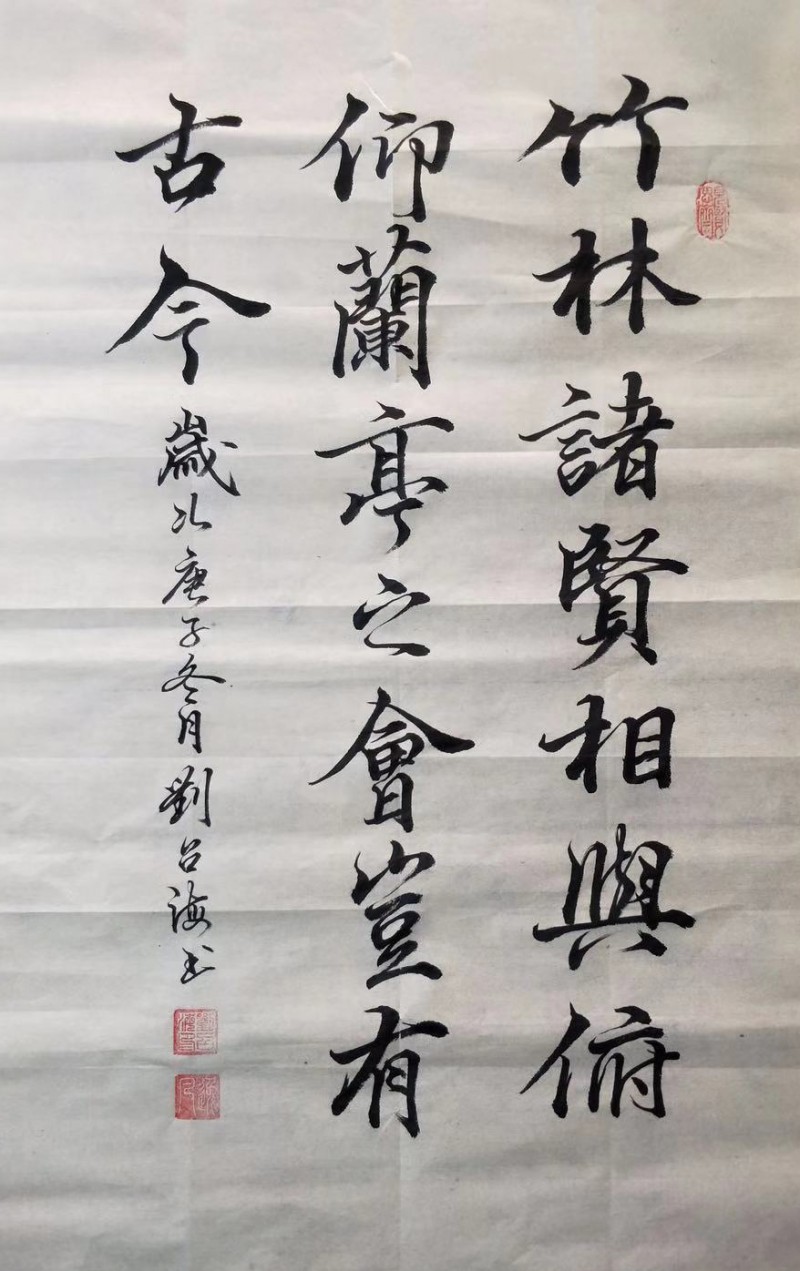 竹林諸賢相與俯
仰蘭亭之會豈有
古今歲次庚子冬月劉呂海书